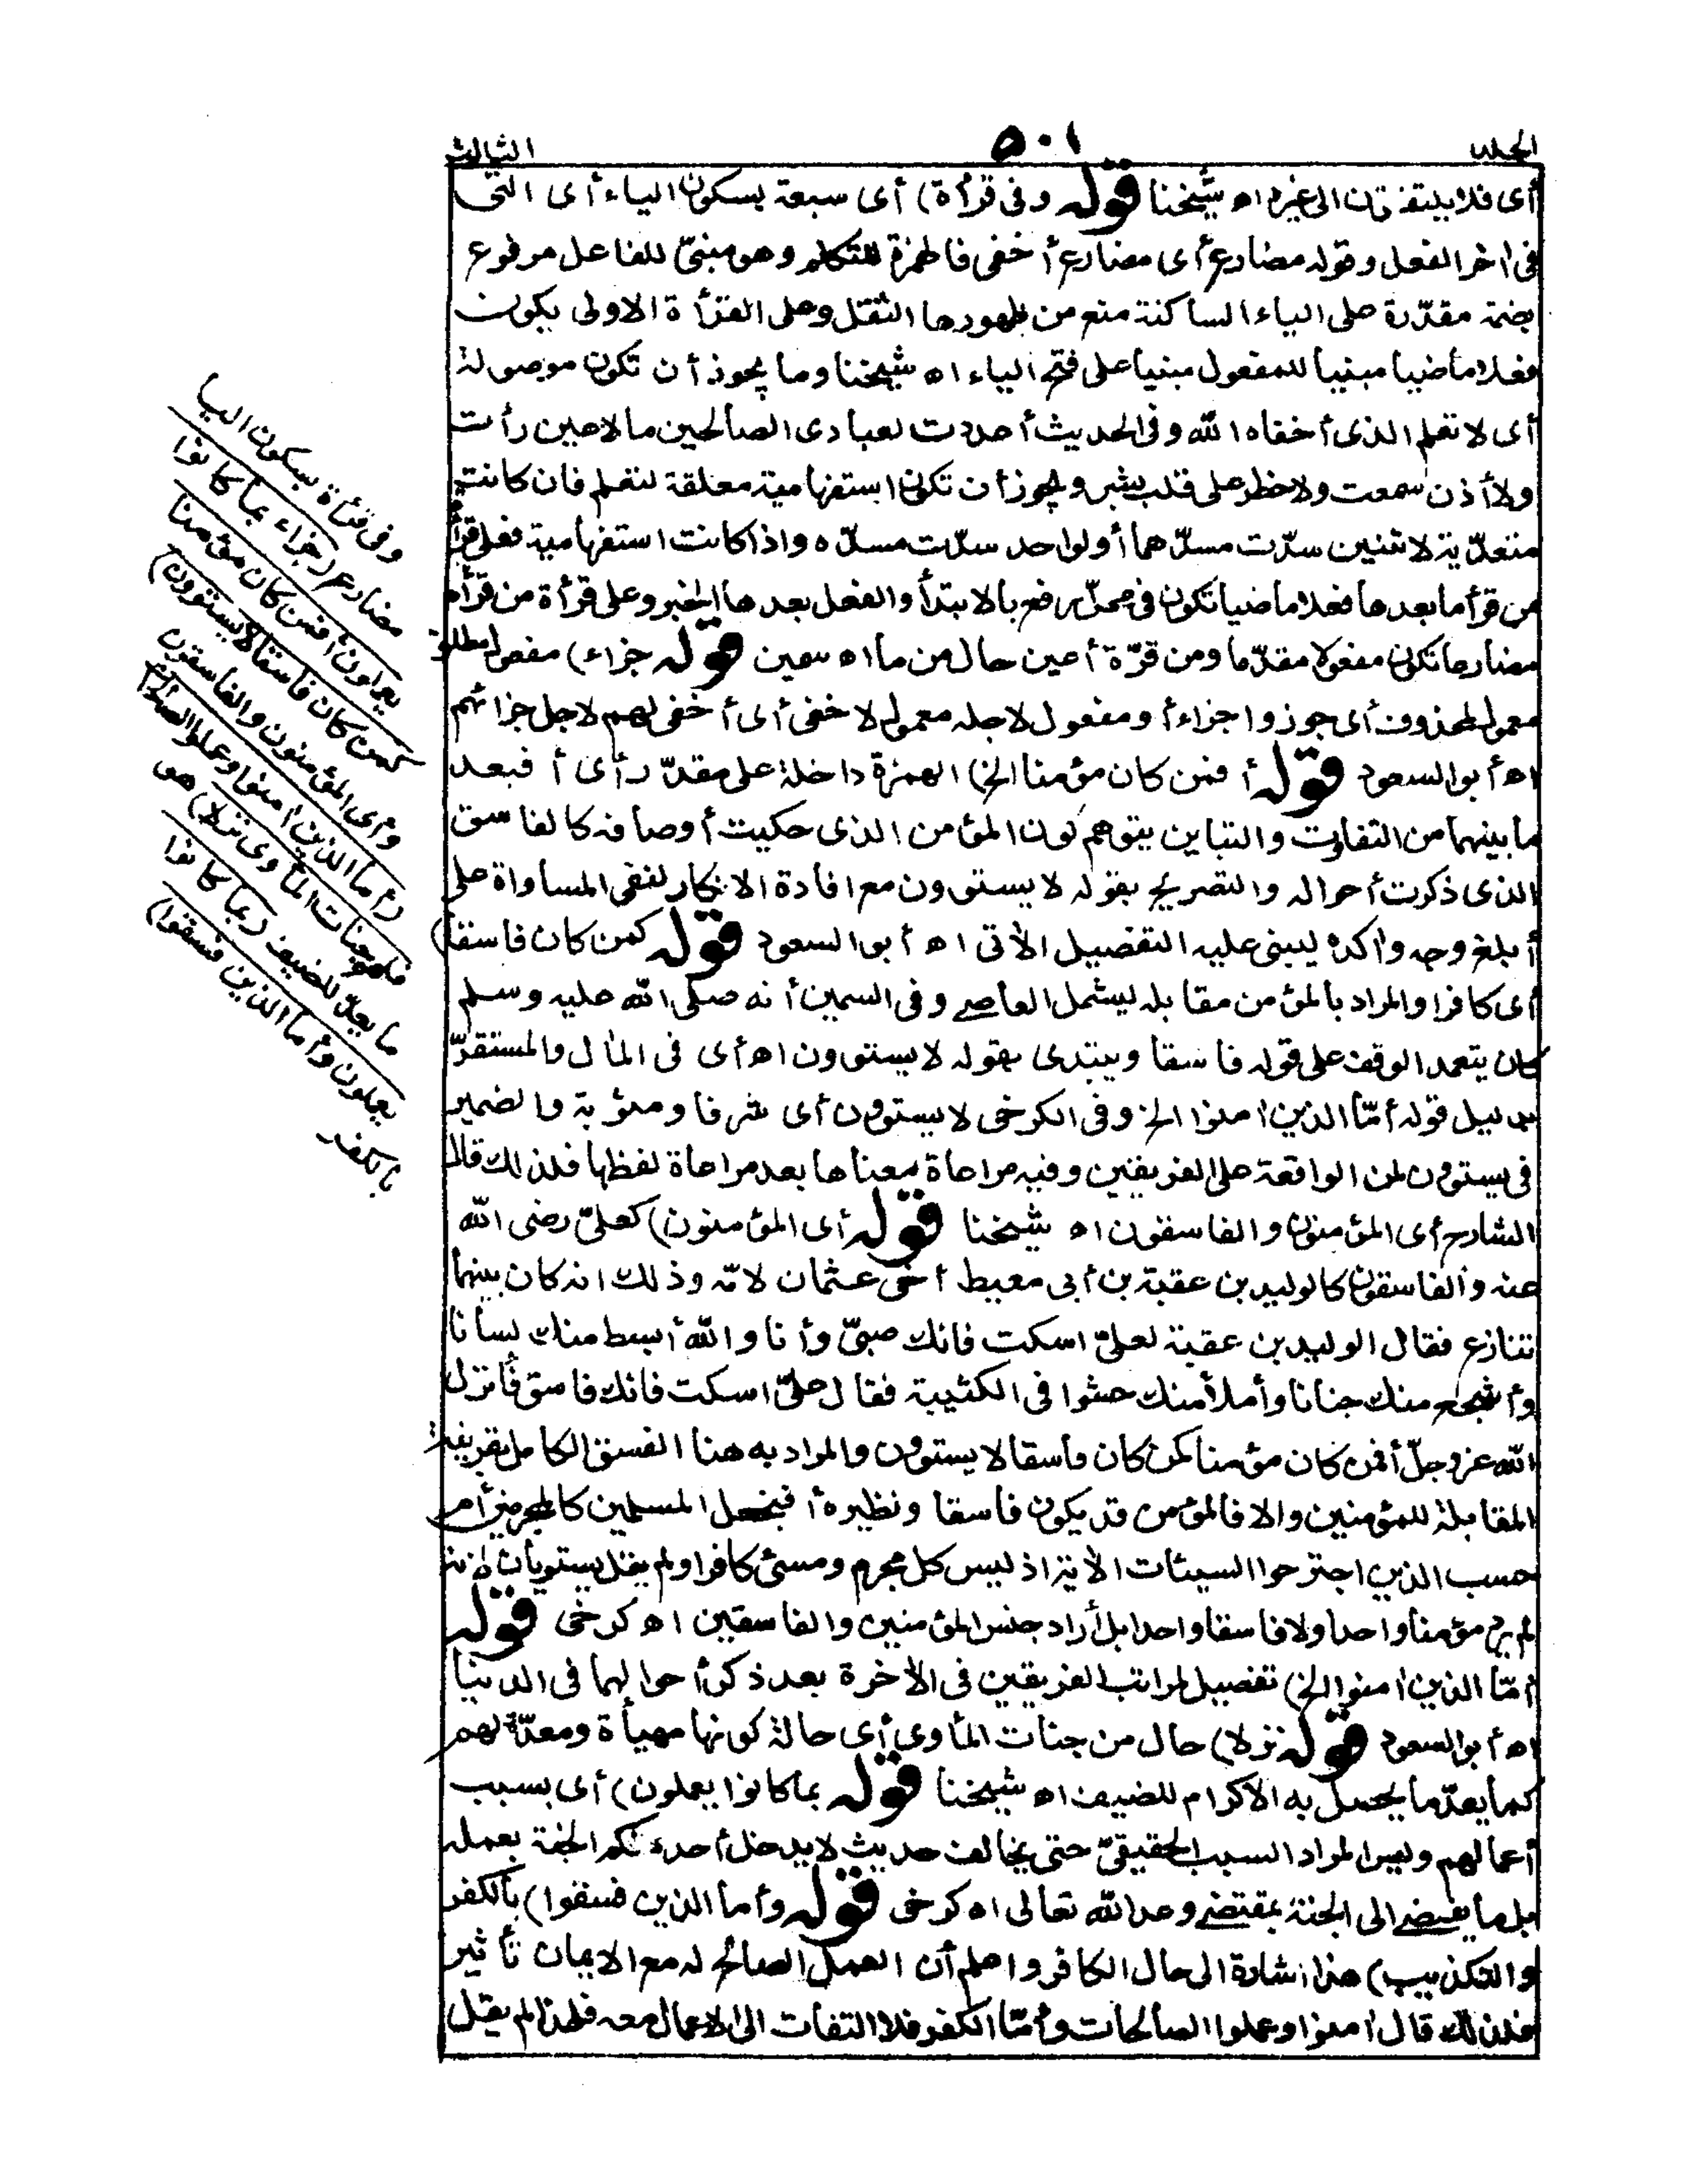 الجلد ٥٠١ الثالث
أى فلا يلتفتون الى غيره اه شيخنا قوله وفى قرأة) أى سبعة بسكون الياء أى التى
فى اخر الفعل وقوله مضارع أى مضارع أخفى فالهمزة للتكلم وهو مبنىّ للفاعل مرفوع
بضمة مقدّرة على الياء الساكنة منع من ظهورها الثقل وعلى القرأة الاولى يكون
فعلا ماضيا مبنيا للمفعول مبنيا على فتح الياء اه شيخنا وما يجوز أن تكون موصولة
أى لا تعلم الذى أخفاه الله وفى الحديث أعددت لعبادى الصالحين ما لا عين رأت
ولا أذن سمعت ولا خطر على قلب بشر ويجوز أن تكون استفهامية معلقة لتعلم فان كانت
متعدّية لاثنين سدّت مسدّهما أو لواحد سدّت مسدّه واذا كانت استفهامية فعلى قرأة
من قرأ ما بعدها فعلا ماضيا تكون فى محل رفع بالابتدأ والفعل بعدها الخبر وعلى قرأة من قرأه
مضارعا تكون مفعولا مقدّما ومن قرّة أعين حال من ما اه سمين قوله جزاء) مفعول مطلق
معمول لمحذوف أى جوزوا جزاء أو مفعول لاجله معمول لاخفى أى أخفى لهم لاجل جزائهم
اه أبو السعود قوله أفمن كان مؤمنا الخ) الهمزة داخلة على مقدّر أى أ فبعد
ما بينهما من التفاوت والتباين يتوهم كون المؤمن الذى حكيت أوصافه كالفاسق
الذى ذكرت أحواله والتصريح بقوله لا يستوون مع افادة الانكار لنفى المساواة على
أبلغ وجه وآكده ليبنى عليه التفصيل الأتى اه أبو السعود قوله كمن كان فاسقا)
أى كافرا والمراد بالمؤمن مقابله ليشمل العاصى وفى السمين أنه صلى الله عليه وسلم
كان يتعمد الوقف على قوله فاسقا ويبتدى بقوله لا يستوون اه أى فى المأل والمستقرّ
بدليل قوله أمّا الذين امنوا الخ وفى الكرخى لا يستوون أى شرفا ومثوبة والضمير
فى يستوون لمن الواقعة على الفريقين وفيه مراعاة معناها بعد مراعاة لفظها فلذلك قال
الشارح أى المؤمنون والفاسقون اه شيخنا قوله أى المؤمنون) كعلىّ رضى الله
عنه والفاسقون كالوليد بن عقبة بن أبى معيط أخى عثمان لامّه وذلك انه كان بينهما
تنازع فقال الوليد بن عقبة لعلىّ اسكت فانك صبىّ وأنا والله أبسط منك لسانا
وأشجع منك جنانا وأملأ منك حشوا فى الكتيبة فقال علىّ اسكت فانك فاسق فأنزل
الله عز وجلّ أفمن كان مؤمنا كمن كان فاسقا لا يستوون والمراد به هنا الفسق الكامل بقرينة
المقابلة للمؤمنين والا فالمؤمن قد يكون فاسقا ونظيره أفنجعل المسلمين كالمجرمين أم
حسب الذين اجترحوا السيئات الأية اذ ليس كل مجرم ومسئ كافرا ولم يقل يستويان لانه
لم يرد مؤمنا واحدا ولا فاسقا واحدا بل أراد جنس المؤمنين والفاسقين اه كرخى قوله
أمّا الذين امنوا الخ) تفصيل لمراتب الفريقين فى الأخرة بعد ذكر أحوالهما فى الدنيا
اه أبو السعود قوله نزلا) حال من جنات المأوى أى حالة كونها مهيأة ومعدّة لهم
كما يعدّ ما يحصل به الاكرام للضيف اه شيخنا قوله بما كانوا يعملون) أى بسبب
أعمالهم وليس المراد السبب الحقيقىّ حتى يخالف حديث لا يدخل أحدكم الجنة بعمله
بل ما يفضى الى الجنة بمقتضى وعد الله تعالى اه كرخى قوله وأما الذين فسقوا) بالكفر
والتكذيب) هذا اشارة الى حال الكافر واعلم أن العمل الصالح له مع الايمان تأثير
فلذلك قال امنوا وعملوا الصالحات وأمّا الكفر فلا التفات الى الاعمال معه فلهذا لم يقل
وفى قرأة بسكون اليا
مضارع (جزاء بما كانوا
يعملون أفمن كان مؤمنا
كمن كان فاسقا لا يستوون)
أى المؤمنون والفاسقون
(أما الذين امنوا وعملوا الصالحات
فلهم جنات المأوى نزلا) هو
ما يعدّ للضيف (بما كانوا
يعملون وأما الذين فسقوا)
بالكفر